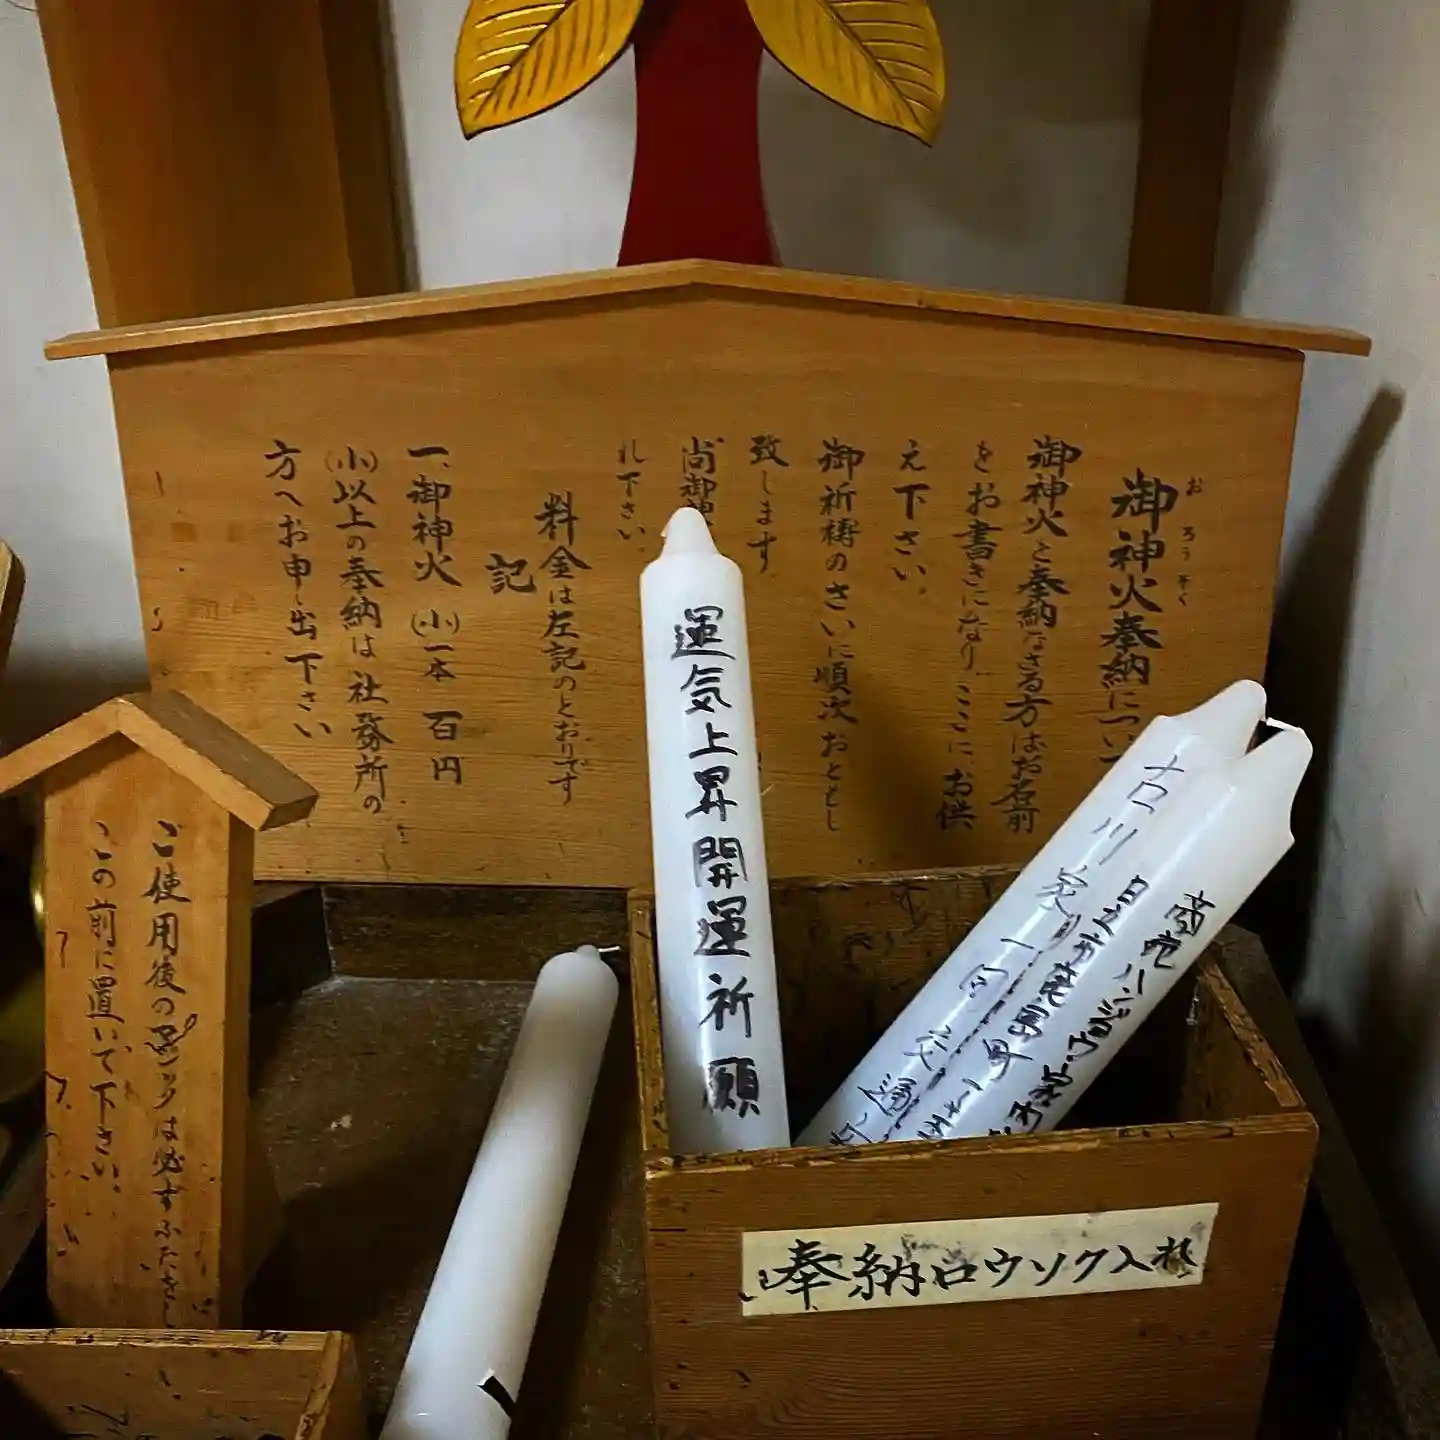 御神火奉納につい
おろうそく
御神火を奉納なさる方はお名前
をお書きになり、ここに、お供
え下さい。
御祈祷のさいに順次おともし
致します
尚御神
れ下さい
料金は左記のとおりです
記
一、御神火 (小)一本 百円
(小)以上の奉納は社務所の
方へお申し出下さい
ご使用後の
は必ずふたをし
この前に置いて下さい。
運気上昇開運祈願
奉納ロウソク入れ